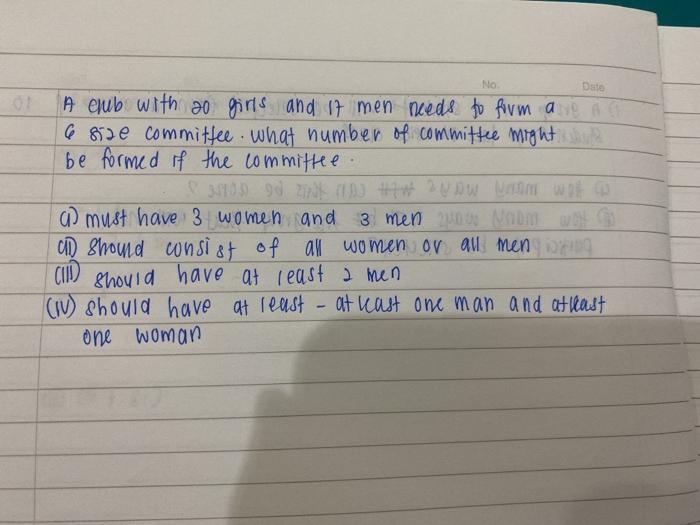 No.
Date
A club with 20 girls and 17 men needs to form a
6 size committee. What number of committee might
be formed if the committee.
(i) must have 3 women and 3 men
(ii) should consist of all women or all men
(iii) should have at least 2 men
(iv) should have at least - at least one man and atleast
one woman